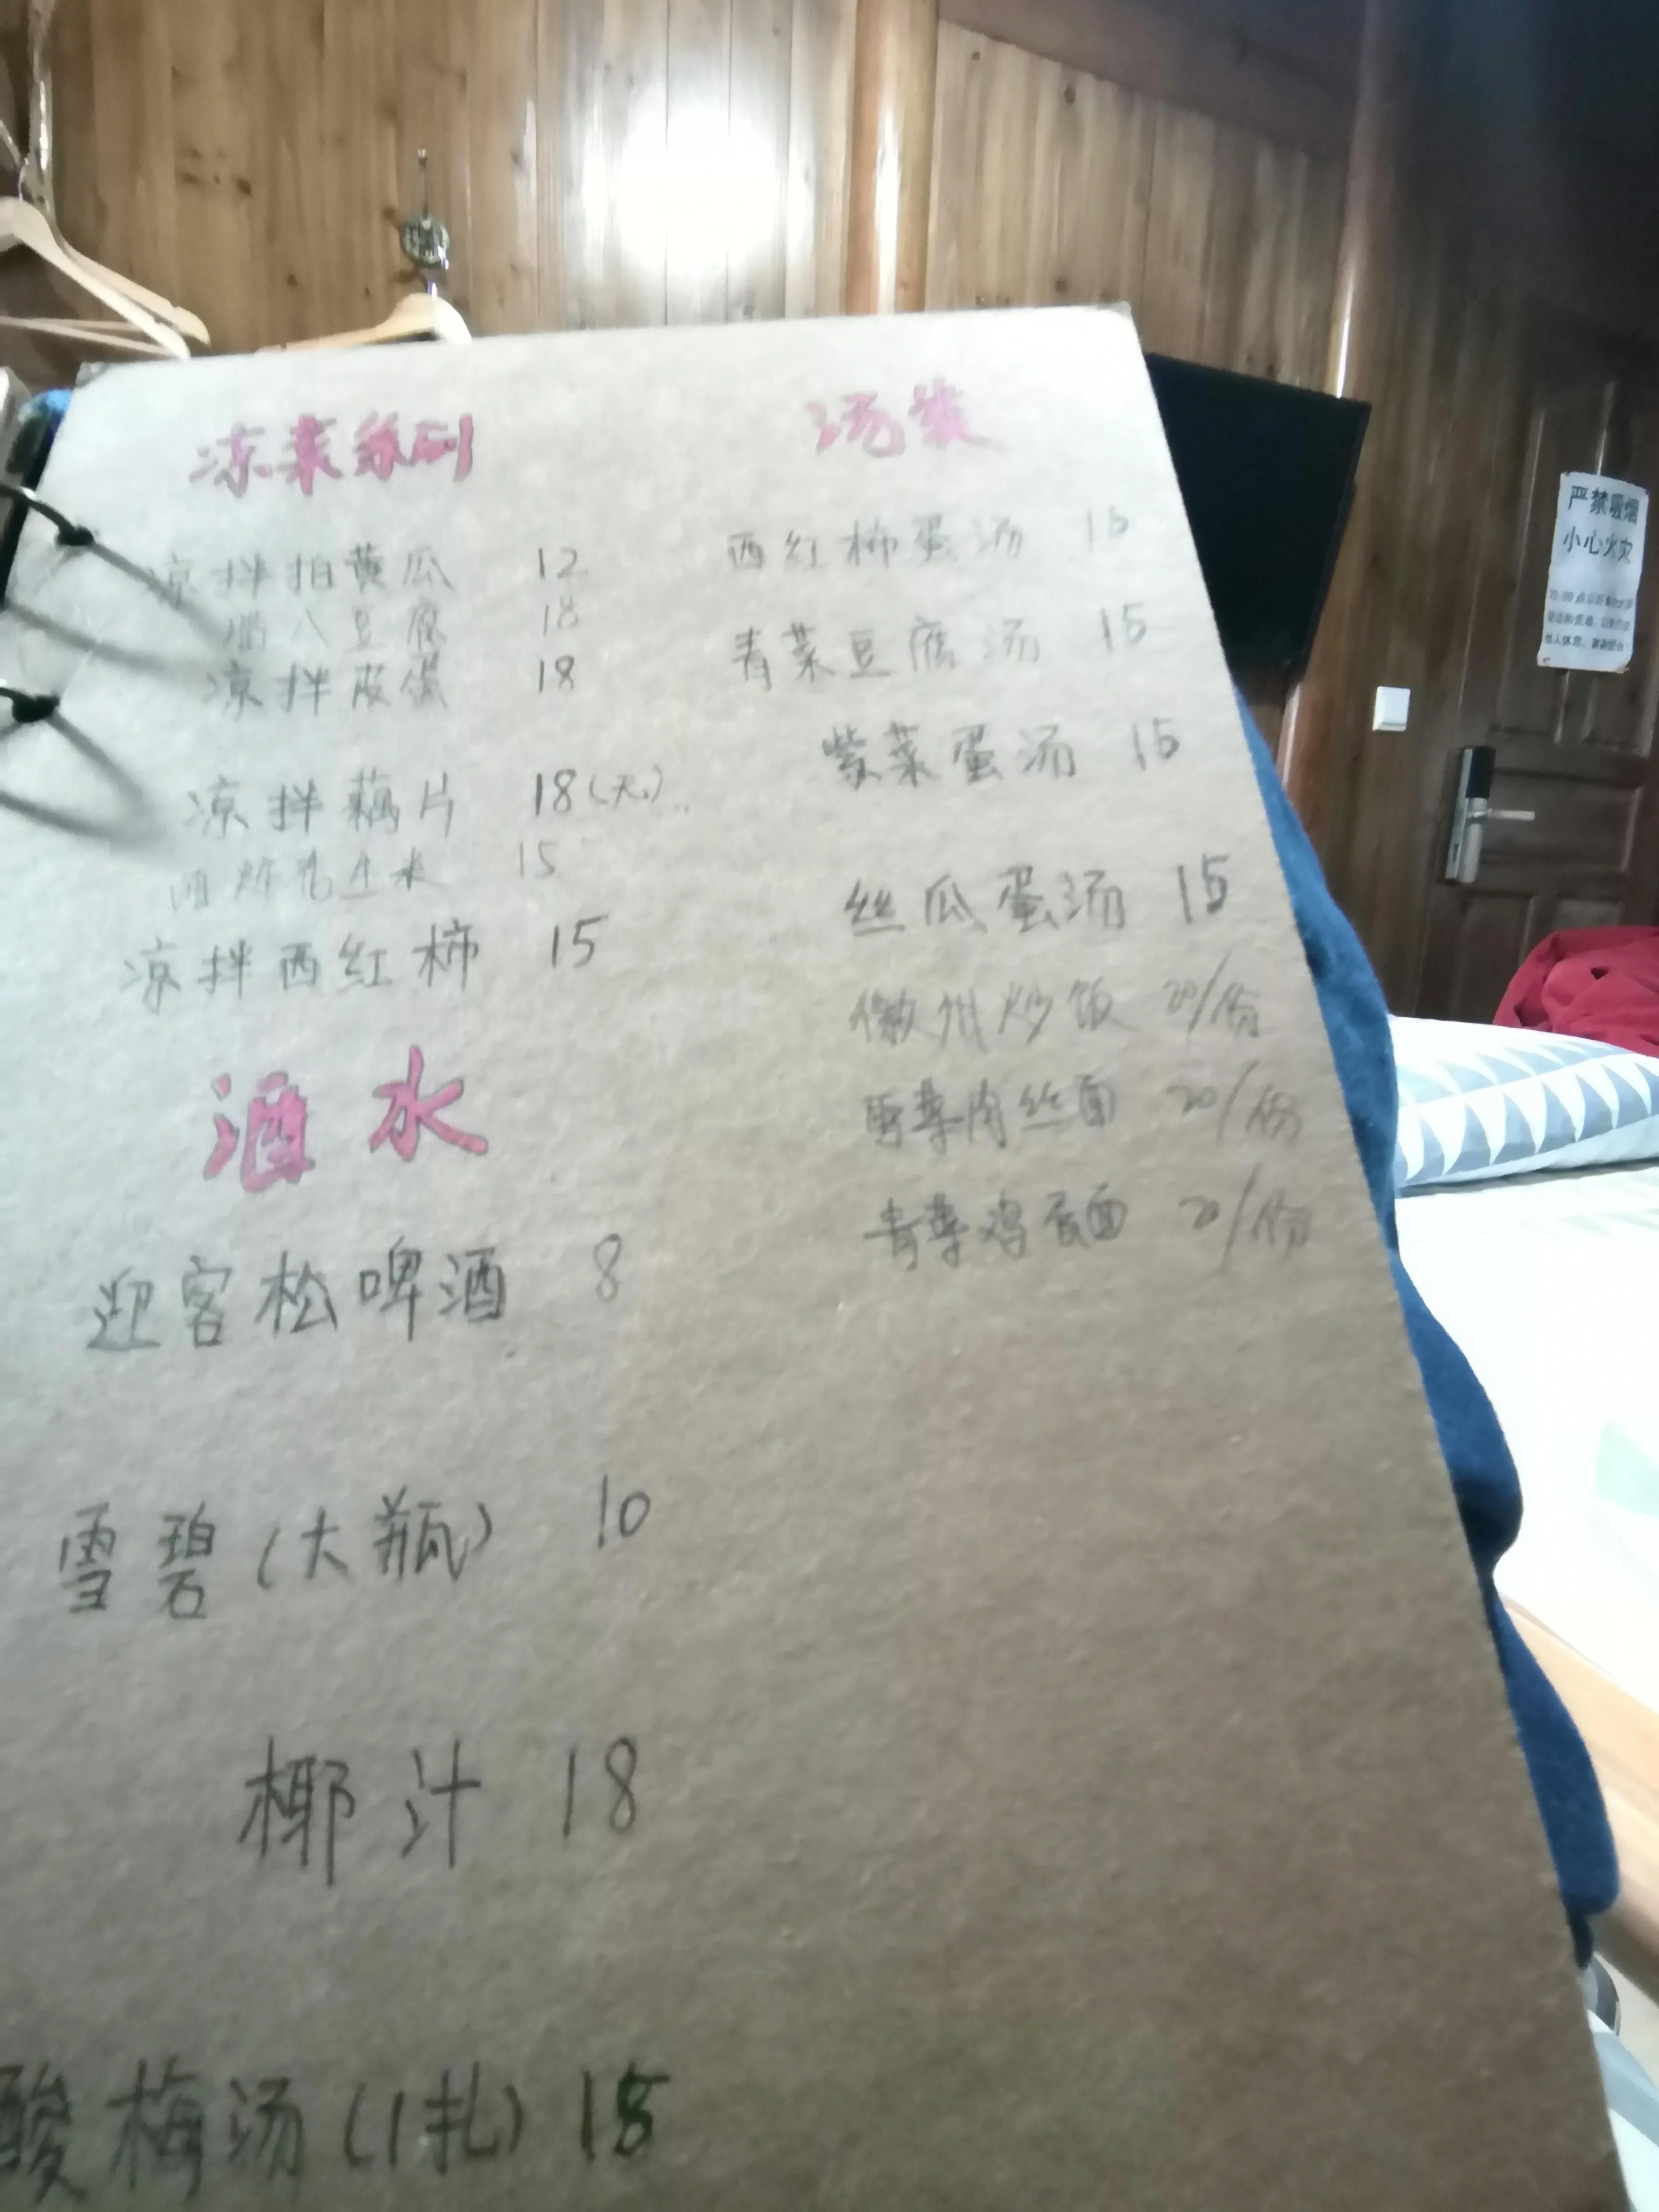 凉菜系列
凉拌拍黄瓜 12
腊八豆腐 18
凉拌皮蛋 18
凉拌藕片 18(无)
油炸花生米 15
凉拌西红柿 15
酒水
迎客松啤酒 8
雪碧(大瓶) 10
椰汁 18
酸梅汤(1扎) 18
汤类
西红柿蛋汤 15
青菜豆腐汤 15
紫菜蛋汤 15
丝瓜蛋汤 15
徽州炒饭 20/份
雪菜肉丝面 20/份
青菜鸡蛋面 20/份
严禁吸烟
小心火灾